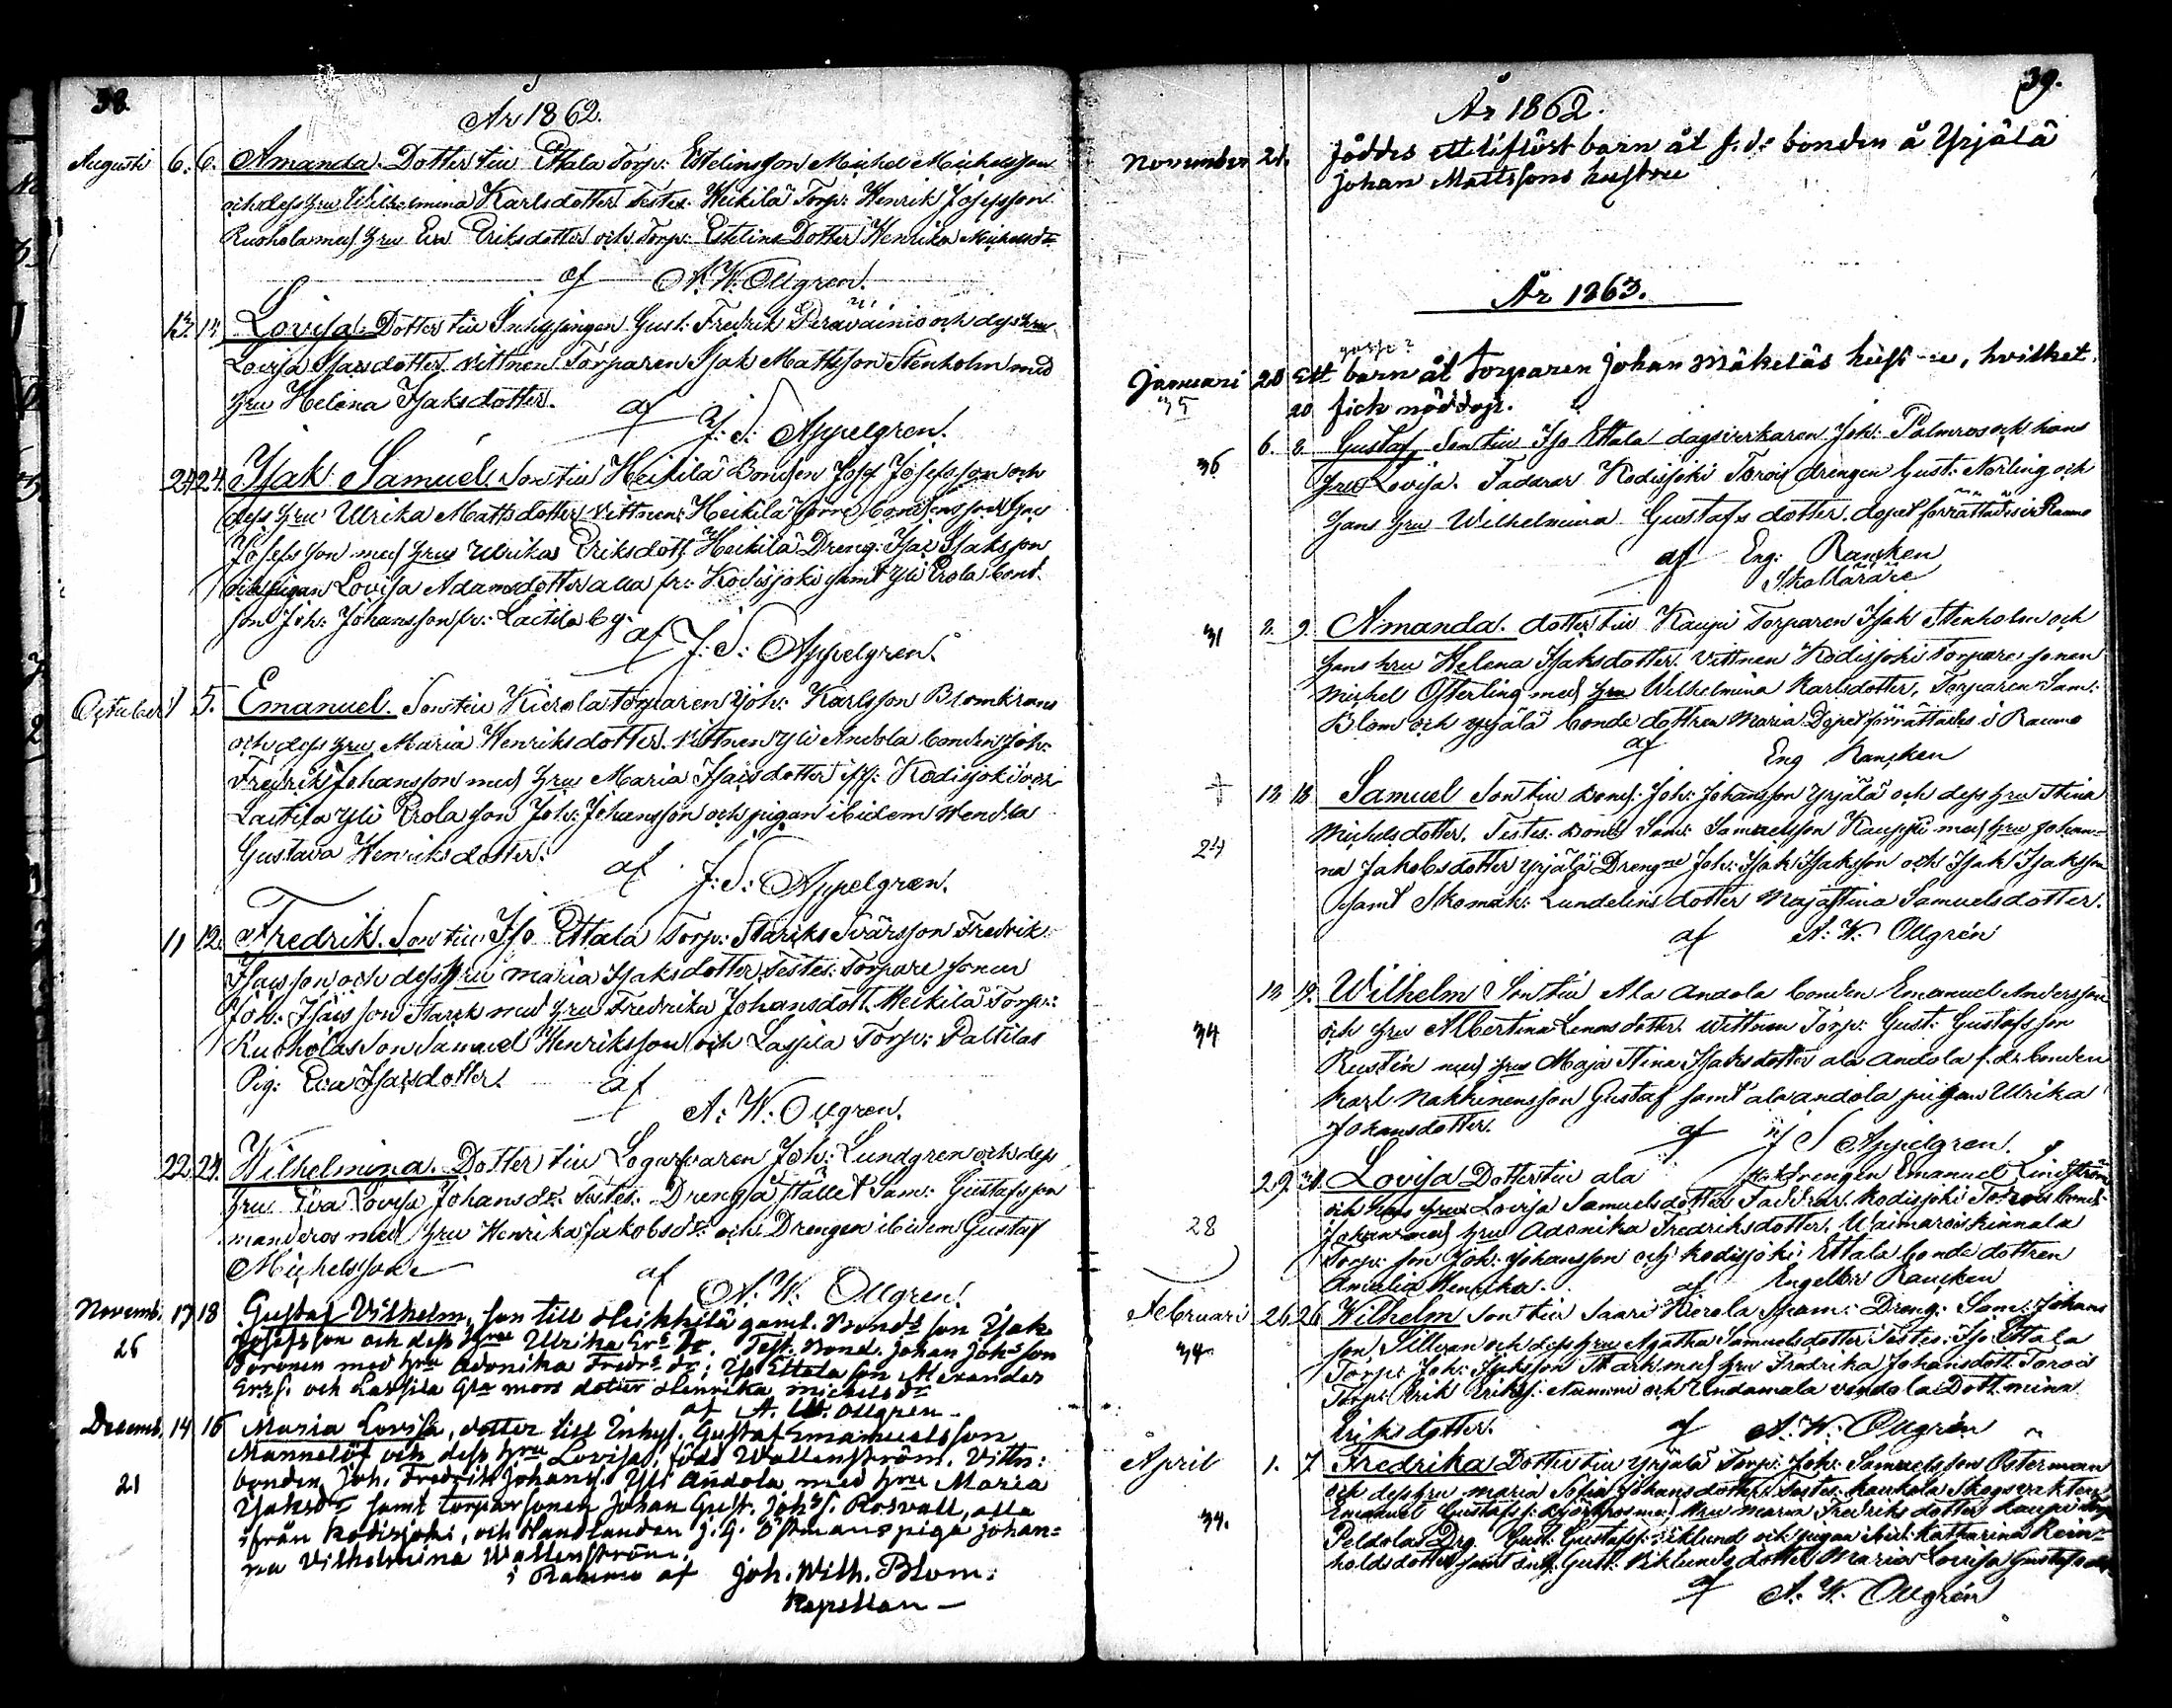 38.
År 1862.
Augusti 6. 6. Amanda. Dotter till Ettala Torp: Estelins Son Michel Michelsson
och dess hru Wilhelmina Karlsdotter Testes. Heikilä Torp: Henrik Josefsson
Ruohola med hru Eva Eriksdotter och Torp: Estelins Dotter Henrika Michelsdr
af A. W. Ollgren.
13. 13. Lovisa. Dotter till Inhysingen Gust: Fredrik Perävainio och dess hru
Lovisa Isaksdotter. Vittnen Torparen Isak Mattsson Stenholm med
hru Helena Isaksdotter.
af J: S: Appelgren.
24. 24. Isak Samuel. Son till Heikilä Bonden Josef Josefsson och
dess hru Ulrika Mattsdotter Vittnen: Heikilä förre bondens son
Josefsson med hru Ulrika Eriksdott Heikilä Dreng: Isak Isaksson
och pigan Lovisa Adamsdotter alla fr: Kodisjoki samt Yli Erola bond.
son Joh: Johansson fr: Laitila by.
af J: S: Appelgren.
October 1 5. Emanuel. Son till Kierola torparen Joh: Karlsson Blomkrans
och dess hru Maria Henriksdotter. Vittnen Yli Andola bonden Joh:
Fredrik Johansson med hru Maria Isaksdotter ifr: Kodisjoki och
Laitila Yli Erola son Joh: Johansson och pigan ibidem Wendla
Gustava Henriksdotter.
af J: S: Appelgren.
11 12. Fredrik. Son till Iso Ettala Torp: Starks Svärson Fredrik
Isaksson och dess hru Maria Isaksdotter Testes: Torpare sonen
Joh: Isaksson Stark med hru Fredrika Johansdott. Heikilä Torp:
Ruoholas Son Samuel Henriksson och Lassila Torp: Paltilas
Pig: Eva Isaksdotter.
af
A: W: Ollgren.
22. 24. Wilhelmina. Dotter till Logarfvaren Joh: Lundgren och dess
hru Eva Lovisa Johansdr. Testes. Dreng å stället Sam: Gustafsson
Manderos med hru Henrika Jakobsdr: och Drengen ibidem Gustaf
Michelsson.
af A: W: Ollgren.
Novemb. 17 18 Gustaf Vilhelm, son till Heikkilä gaml. Bonds son Isak
26 Josefsson och dess hru Ulrika Ers dr. Test. Bond. Johan Johsson
Toronen med hru Adonika Fredrs dr; Iso Ettala son Alexander
Ersf. och Lassila Gla mors dotter Henrika Michelsdr
af A. W. Ollgren
Decemb. 14 16 Maria Lovisa, dotter till Inhys. Gustaf Emanuelsson
Mannelöf och dess hru Lovisa, född Wallenström. Vittn:
21 bonden Joh. Fredrik Johans. Yli Andola med hru Maria
Isaksdr samt torparsonen Johan Gust. Johs. Rosvall, alla
ifrån Kodisjoki, och Handlanden J. G. Östmans piga Johan=
na Vilhelmina Wallenström.
i Raumo af Joh. Wilh. Blom.
Kapellan
39.
År 1862.
November 21. föddes ett liflöst barn åt f. d. bonden å Yrjälä
Johan Mattssons hustru
År 1863.
gosse?
Januari 20 Ett barn åt Torparen Johan Mäkeläs hustru, hvilket
35 20 fick nöddop.
6. 8. Gustaf, Son till Iso Ettala dagsverkaren Joh: Palmros och hans
36 hru Lovisa. Faddrar Kodisjoki Torois drengen Gust: Norling och
hans hru Wilhelmina Gustafsdotter. dopet förrättades i Raumo
af Eng: Rancken
Skollärare
31 8. 9. Amanda. dotter till Kaupi Torparen Isak Stenholm och
hans hru Helena Isaksdotter. Vittnen Kodisjoki Torpare sonen
Michel Österling med hru Wilhelmina Karlsdotter, Torparen Sam:
Blom och Yrjälä bonde dottren Maria. Dopet förrättades i Raumo
af Eng Rancken
+ 18 18 Samuel Son till Bond: Joh: Johansson Yrjälä och dess hru Stina
24 Michelsdotter. Testes. Bond Sam: Samuelsson Kauppi med hru Johan=
na Jakobsdotter Yrjälä Drengne Joh: Isak Isaksson och Isak Isaksson
samt Skomak: Lundelins dotter Maja Stina Samuelsdotter.
af A: W: Ollgrén
18 19. Wilhelm Son till Ala Andola bonden Emanuel Andersson
34 och hru Albertina Lenasdotter. Wittnen Torp: Gust: Gustafsson
Rustén med hru Maja Stina Isaksdotter ala Andola f. d. bonden
Karl Nakkinens son Gustaf samt ala andola pigan Ulrika
Johansdotter.
af J S Appelgren.
29. 31. Lovisa Dotter till ala drengen Emanuel Lindström
och hans hru Lovisa Samuelsdotter Faddrar. Kodisjoki Torois bond
28 Johan med hru Adonika Fredriksdotter, Waimaro Kinnala
Torp: son Joh: Johansson och Kodisjoki Ettala bonde dottren
Amalia Henrika.
af Engelbr Rancken
Februari 26. 26. Wilhelm Son till Saari Kierola Dreng: Sam: Johans
34 son Sillvan och dess hru Agatha Samuelsdotter Testes: Iso Ettala
Torp: Joh: Isaksson Stark med hru Fredrika Johansdott. Torois
Torp: Erik Eriks: Nummi och Undamala vendola Dott. Mina
Eriksdotter.
af A: W: Ollgrén
April 1. 7 Fredrika Dotter till Yrjälä Torp: Joh: Samuelsson Österman
och dess hru Maria Sofia Johansdotter. Testes. Kaukola Skogvakten
34. Emanuel Gustafs: Björkros med hru Maria Fredriksdotter Kaupi
Peldolas Drg Gust: Gustafs: Eklund och pigan ibid: Katharina Rein=
holdsdotter samt Gust: Eklunds dotter Maria Lovisa Gustafs
af A: W: Ollgrén